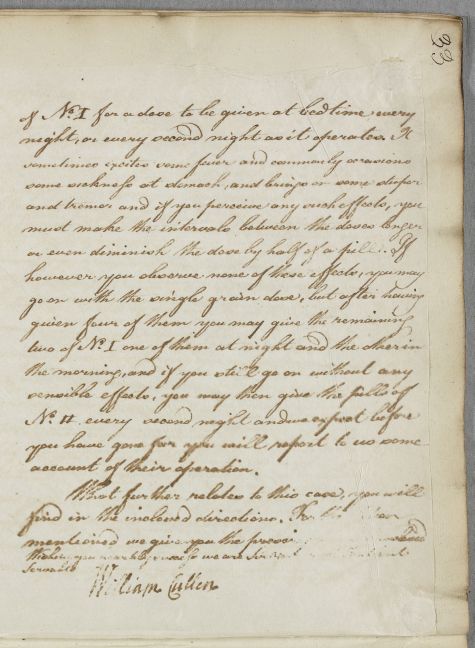 33
of No. I for a dose to be given at bedtime every
night, or every second night as it operates. It
sometimes excites some fever and commonly occasions
some sickness at stomach, and brings on some stupor
and tremor and if you perceive any such effects, you
must make the intervals between the doses longer
or even diminish the dose by half of a pill. If
however you observe none of these effects, you may
go on with the single grain dose, but after having
given four of them you may give the remaining
two of No. I one of them at night and the other in
the morning, and if you still go on without any
sensible effects, you may then give the pills of
No. II every second night and we expect before
you have gone far you will report to us some
account of their operation.
What further relates to this case, you will
find in the inclosed directions. For the
mentioned we give you the
Wishing you we are
Servants
William Cullen